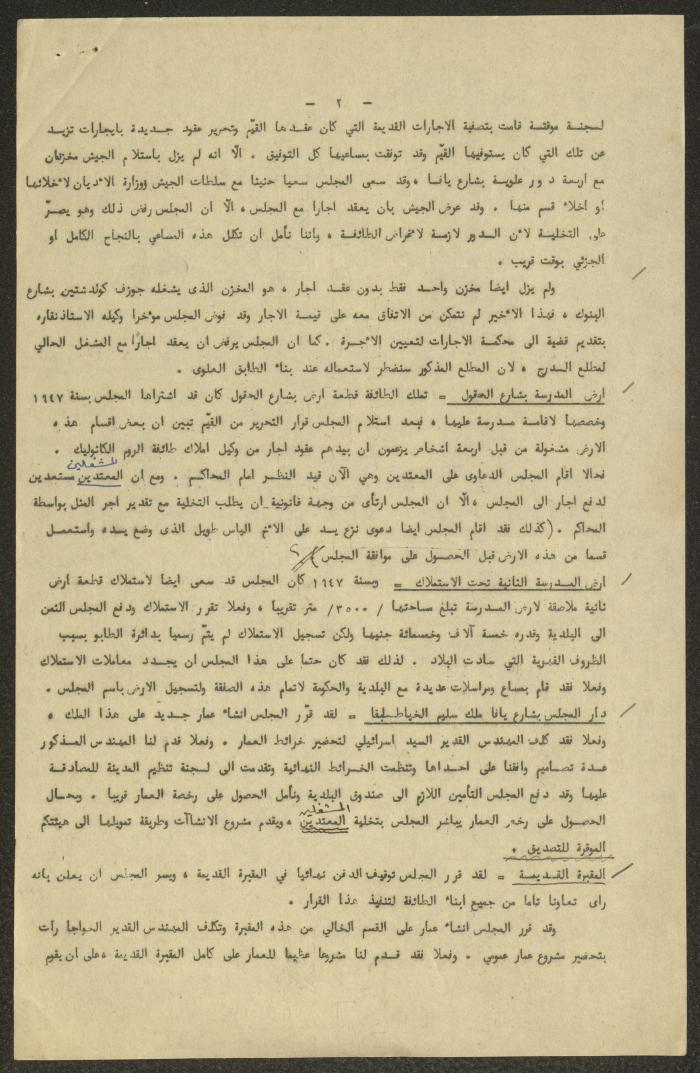 - ٢ -
لجنة موقتة قامت بتصفية الاجارات القديمة التي كان عقدها القيّم وتحرير عقود جديدة بايجارات تزيد
عن تلك التي كان يستوفيها القيّم وقد توفقت بمساعيها كل التوفيق . الّا انه لم يزل باستلام الجيش مخزنان
مع اربعة دور علوية بشارع يافا ، وقد سعى المجلس سعيا حثيثا مع سلطات الجيش ووزارة الاديان لاخلائها
او اخلاء قسم منها . وقد عرض الجيش بان يعقد اجارا مع المجلس ، الّا ان المجلس رفض ذلك وهو يصرّ
على التخلية لان الدور لازمة لاغراض الطائفة ، واننا نأمل ان تكلل هذه المساعي بالنجاح الكامل او
الجزئي بوقت قريب .
ولم يزل ايضا مخزن واحد فقط بدون عقد اجار ، هو المخزن الذى يشغله جوزف كولدشتين بشارع
البنوك ، فهذا الاخير لم نتمكن من الاتفاق معه على قيمة الاجار وقد فوض المجلس مؤخرا وكيله الاستاذ نقاره
بتقديم قضية الى محكمة الاجارات لتعيين الاجرة . كما ان المجلس يرفض ان يعقد اجارًا مع المشغل الحالي
لمطلع الدرج ، لان المطلع المذكور سنضطر لاستعماله عند بناء الطابق العلوى .
ارض المدرسة بشارع الحقول = تملك الطائفة قطعة ارض بشارع الحقول كان قد اشتراها المجلس بسنة ١٩٤٧
وخصصها لاقامة مدرسة عليها ، فبعد استلام المجلس قرار التحرير من القيّم تبين ان بعض اقسام هذه
الارض مشغولة من قبل اربعة اشخاص يزعمون ان بيدهم عقود اجار من وكيل املاك طائفة الروم الكاثوليك .
المشغلين
فحالا اقام المجلس الدعاوى على المعتدين وهي الآن قيد النظر امام المحاكم . ومع ان المعتدين مستعدين
لدفع اجار الى المجلس ، الّا ان المجلس ارتأى من وجهة قانونية ان يطلب التخلية مع تقدير اجر المثل بواسطة
المحاكم . (كذلك فقد اقام المجلس ايضا دعوى نزع يد على الاخ الياس طويل الذى وضع يده واستعمل
قسما من هذه الارض قبل الحصول على موافقة المجلس)
ارض المدرسة الثانية تحت الاستملاك = وبسنة ١٩٤٧ كان المجلس قد سعى ايضا لاستملاك قطعة ارض
ثانية ملاصقة لارض المدرسة تبلغ مساحتها /٣٥٠٠/ متر تقريبا ، وفعلا تقرر الاستملاك ودفع المجلس الثمن
الى البلدية وقدره خمسة آلاف وخمسمائة جنيها ولكن تسجيل الاستملاك لم يتمّ رسميا بدائرة الطابو بسبب
الظروف القهرية التي سادت البلاد . لذلك فقد كان حتما على هذا المجلس ان يجدد معاملات الاستملاك
وفعلا فقد قام بمساع ومراسلات عديدة مع البلدية والحكومة لاتمام هذه الصفقة ولتسجيل الارض باسم المجلس .
دار المجلس بشارع يافا ملك سليم الخياط سابقا = لقد قرّر المجلس انشاء عمار جديد على هذا الملك ،
وفعلا فقد كلف المهندس القدير السيد اسرائيلي لتحضير خرائط العمار . وفعلا قدم لنا المهندس المذكور
عدة تصاميم وافقنا على احداها وتنظمت الخرائط النهائية وتقدمت الى لجنة تنظيم المدينة للمصادقة
عليها وقد دفع المجلس التأمين اللازم الى صندوق البلدية ونأمل الحصول على رخصة العمار قريبا . وبحال
المشغلين
الحصول على رخص العمار يباشر المجلس بتخلية المعتدين ، ويقدم مشروع الانشاآت وطريقة تمويلها الى هيئتكم
الموقرة للتصديق .
المقبرة القديمة = لقد قرر المجلس توقيف الدفن نهائيا في المقبرة القديمة ، ويسر المجلس ان يعلن بانه
راى تعاونا تاما من جميع ابناء الطائفة لتنفيذ هذا القرار .
وقد قرر المجلس انشاء عمار على القسم الخالي من هذه المقبرة وتكلف المهندس القدير الخواجا رات
بتحضير مشروع عمار عمومي . وفعلا فقد قدم لنا مشروعا عظيما للعمار على كامل المقبرة القديمة ، على ان يقوم